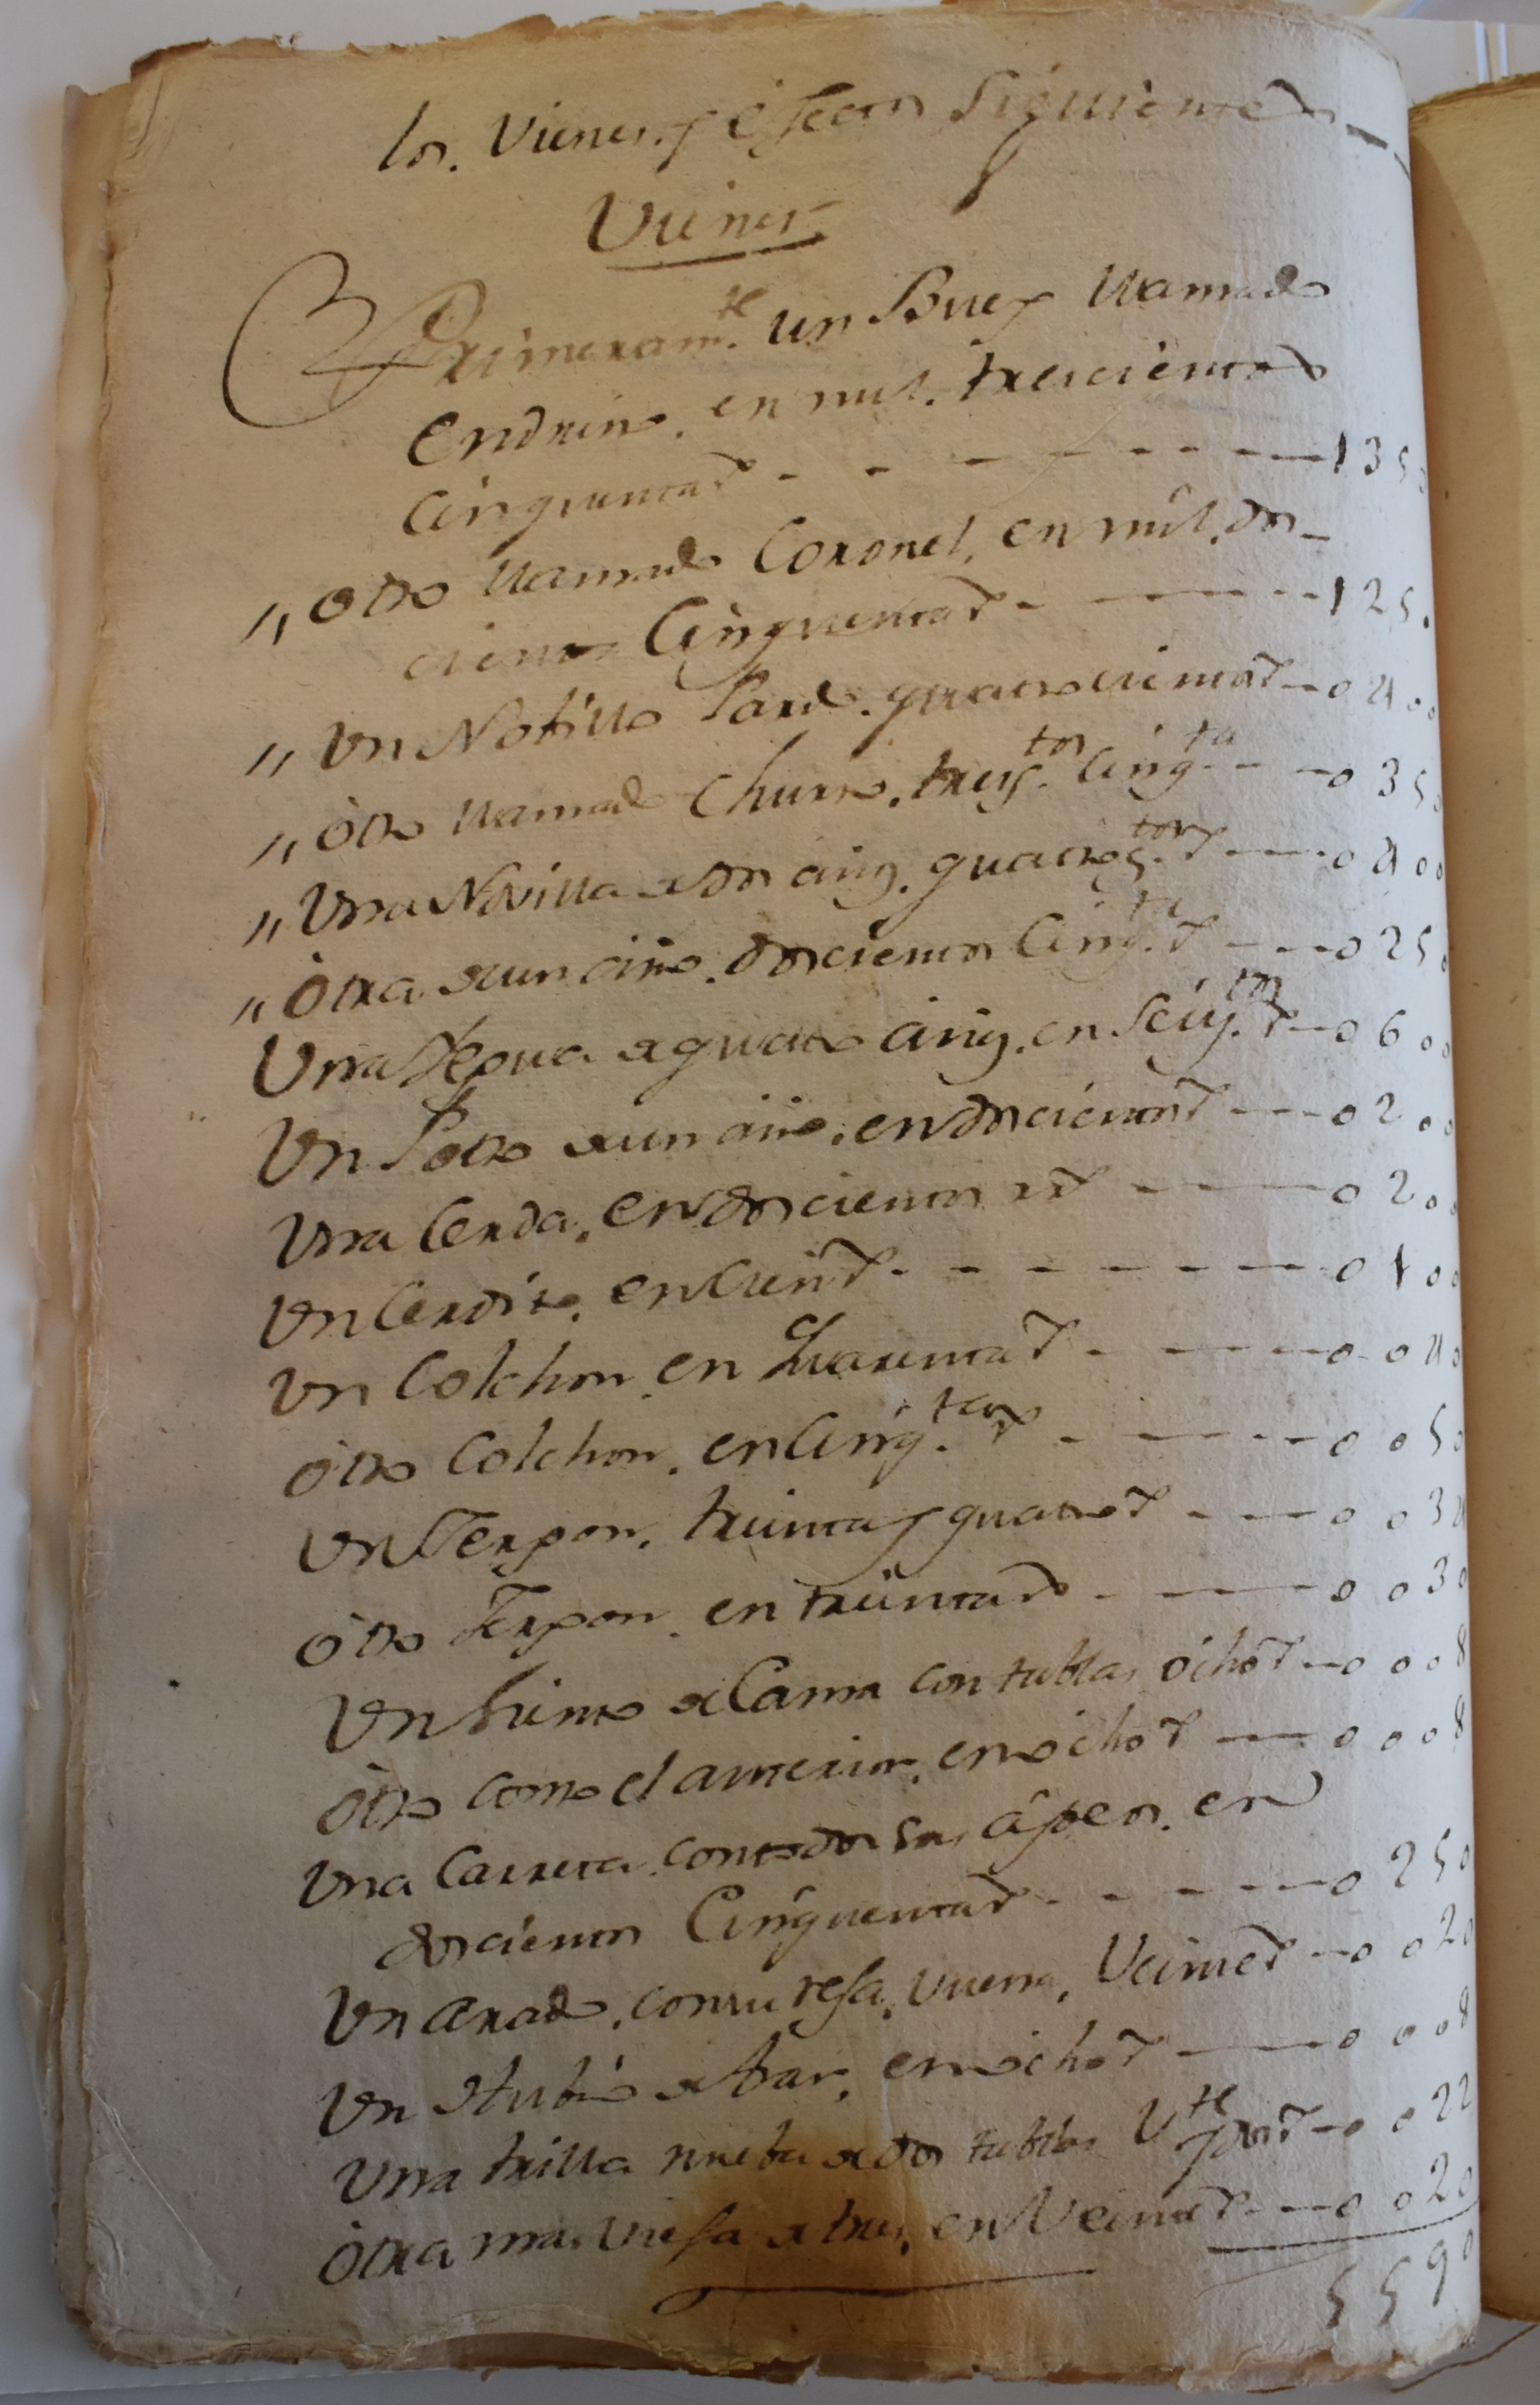 los Vienes, y efectos siguientes
Vienes
Primeram.te un Buey llamado
Endrino, en mil trescientos
Cinquenta r.s - - - 1350
,, Otro llamado Coronel, en mil dos-
cientos Cinquenta r.s - - - 1250
,, Un Nobillo Pardo, quatrocientos r.s - 0400
,, Otro llamado Churro, tress.tos Cinq.ta - - 0350
,, Una Novilla de dos añs. quatroc.tos r.s - 0400
,, Otra de un año, doscientos Cinq.ta r.s - - 0250
Una Yegua de quatro añs. en Seiss.tos r.s - 0600
Un Potro de un año, en doscientos r.s - - 0200
Una Cerda, en doscientos rr.s - - - 0200
Un Cerdito, en Cien r.s - - - 0100
Un Colchon, en Quarenta r.s - - - 0040
Otro Colchon, en Cinq.ta r.s - - - 0050
Un Jergon, treinta y quatro r.s - - 0034
Otro Jergon, en treinta r.s - - - 0030
Un de Cama con tablas, ocho r.s - 0008
Otro como el anterior, en ocho r.s - 0008
Una Carreta, con todos sus aperos, en
doscientos Cinquenta r.s - - - 0250
Un arado, con su rexa, vuena, Veinte r.s - 0020
Un de Arar, en ocho r.s - - 0008
Una trilla nueba de dos tablas V.te y dos r.s - 0022
Otra mas viefa de tres, en Veinte r.s - - 0020
5590